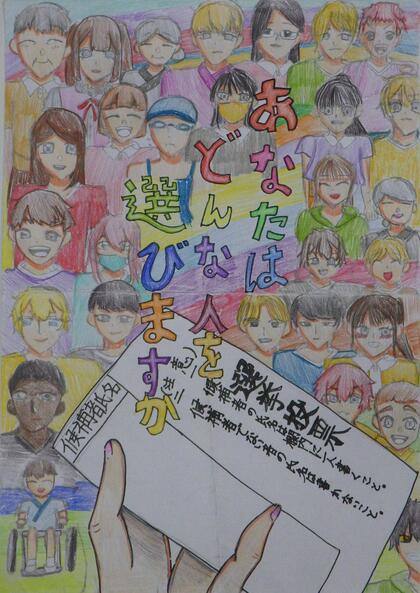 あなたは
どんな人を
選びますか
選挙投票
注意
一 候補者の氏名は欄内に一人書くこと。
二 候補者でない者の氏名は書かないこと。
候補者氏名